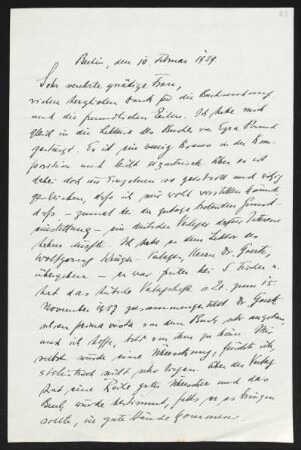 Berlin, den 10. Februar 1959.
Sehr verehrte gnädige Frau,
vielen herzlichen Dank für die Buchsendung
und die freundlichen Zeilen. Ich habe mich
gleich in die Lektüre des Buches von Ezra Pound
gestürzt. Es ist ein wenig in der Kom-
position und leicht exzentrisch aber es ist
dabei doch im Einzelnen so geistvoll und witzig
geschrieben, daß ich mir wohl vorstellen könnte
daß – zumal bei der
– ein deutscher Verleger dafür Interesse
haben dürfte. Ich habe es dem Lektor des
Wolfgang Krüger-Verlages, Herrn Dr.
übergeben – er war früher bei S. Fischer u.
hat das hübsche z. zum 15
November 1957 zusammengestellt. Dr.
ist von dem Buch sehr angetan,
und ich hoffe, bald von ihm zu hören. Mir
selbst würde eine Übersetzung, fürchte ich,
stilistisch nicht sehr liegen. Aber der Verlag
hat eine Reihe guter Übersetzer und das
Buch würde bestimmt, falls er es bringen
sollte, in gute Hände kommen.